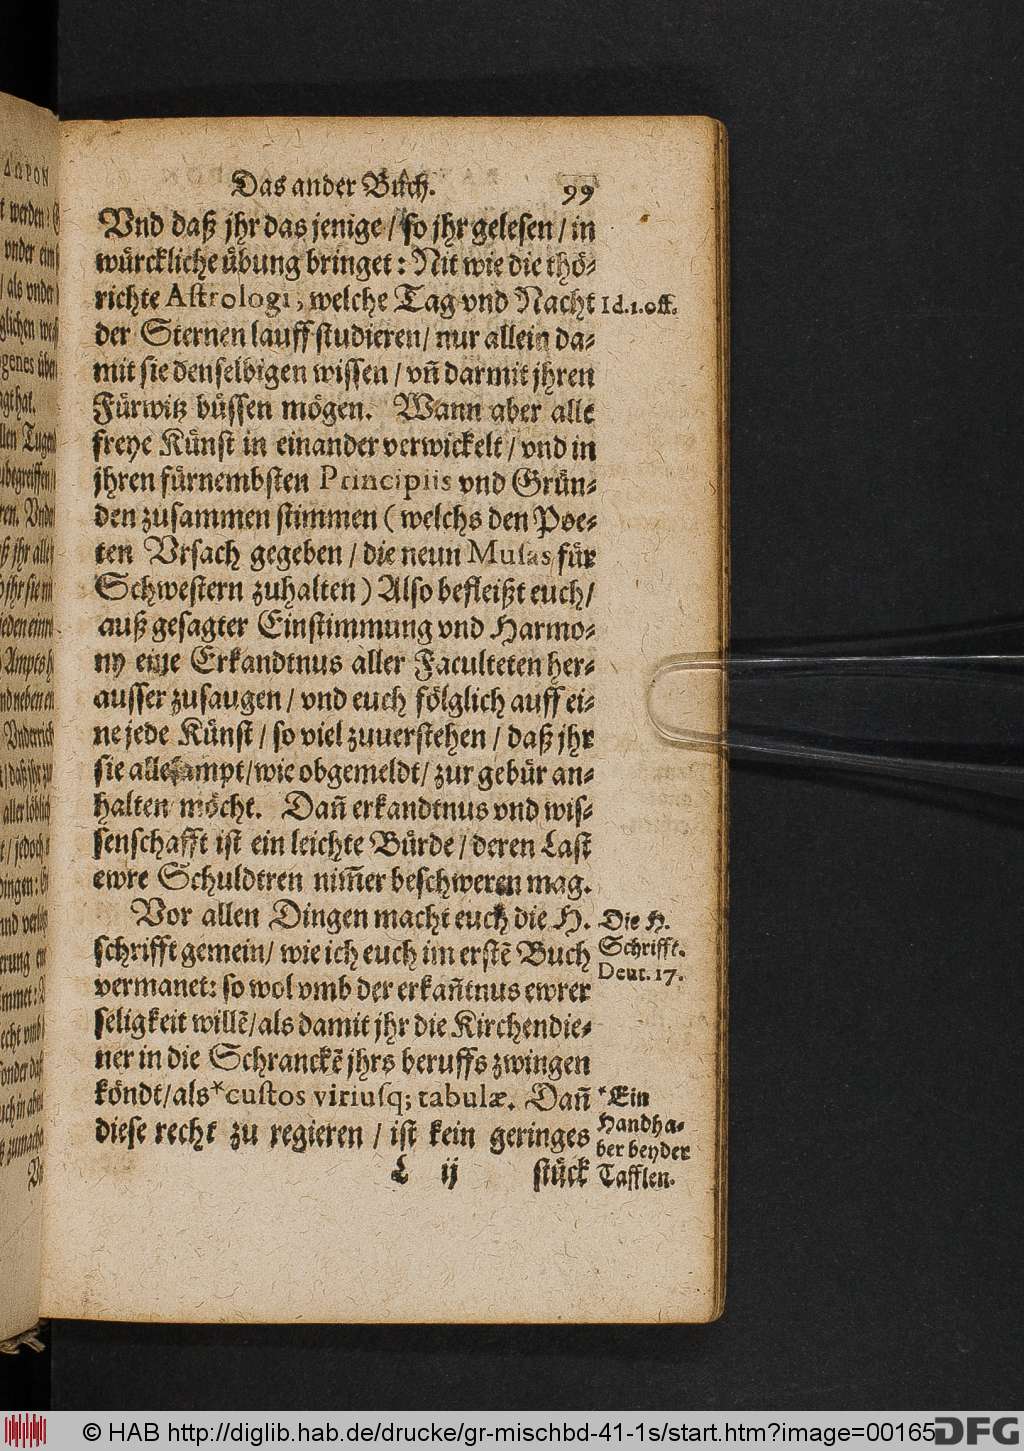 Das ander Buch. 99
Vnd daß jhr das jenige / so jhr gelesen / in
würckliche übung bringet: Nit wie die thö-
richte Astrologi, welche Tag vnd Nacht
Id. 1. off.
der Sternen lauff studieren / nur allein da-
mit sie denselbigen wissen / vñ darmit jhren
Fürwitz büssen mögen. Wann aber alle
freye Künst in einander verwickelt / vnd in
jhren fürnembsten Principiis vnd Grün-
den zusammen stimmen (welchs den Poe-
ten Vrsach gegeben / die neun Musas für
Schwestern zuhalten) Also befleißt euch /
auß gesagter Einstimmung vnd Harmo-
ny eine Erkandtnus aller Faculteten her-
ausser zusaugen / vnd euch fölglich auff ei-
ne jede Künst / so viel zuuerstehen / daß jhr
sie allesampt / wie obgemeldt / zur gebür an-
halten möcht. Dañ erkandtnus vnd wis-
senschafft ist ein leichte Bürde / deren Last
ewre Schuldtren nim̃er beschweren mag.
Vor allen Dingen macht euch die H.
schrifft gemein / wie ich euch im erstẽ Buch
vermanet: so wol vmb der erkañtnus ewrer
seligkeit willẽ / als damit jhr die Kirchendie-
ner in die Schranckẽ jhrs beruffs zwingen
köndt / als *custos vtriusq; tabulæ. Dañ
diese recht zu regieren / ist kein geringes
Die H.
Schrifft.
Deut. 17.
*Ein
Handha-
ber beyder
Tafflen.
L ij stück
© HAB http://diglib.hab.de/drucke/gr-mischbd-41-1s/start.htm?image=00165
DFG